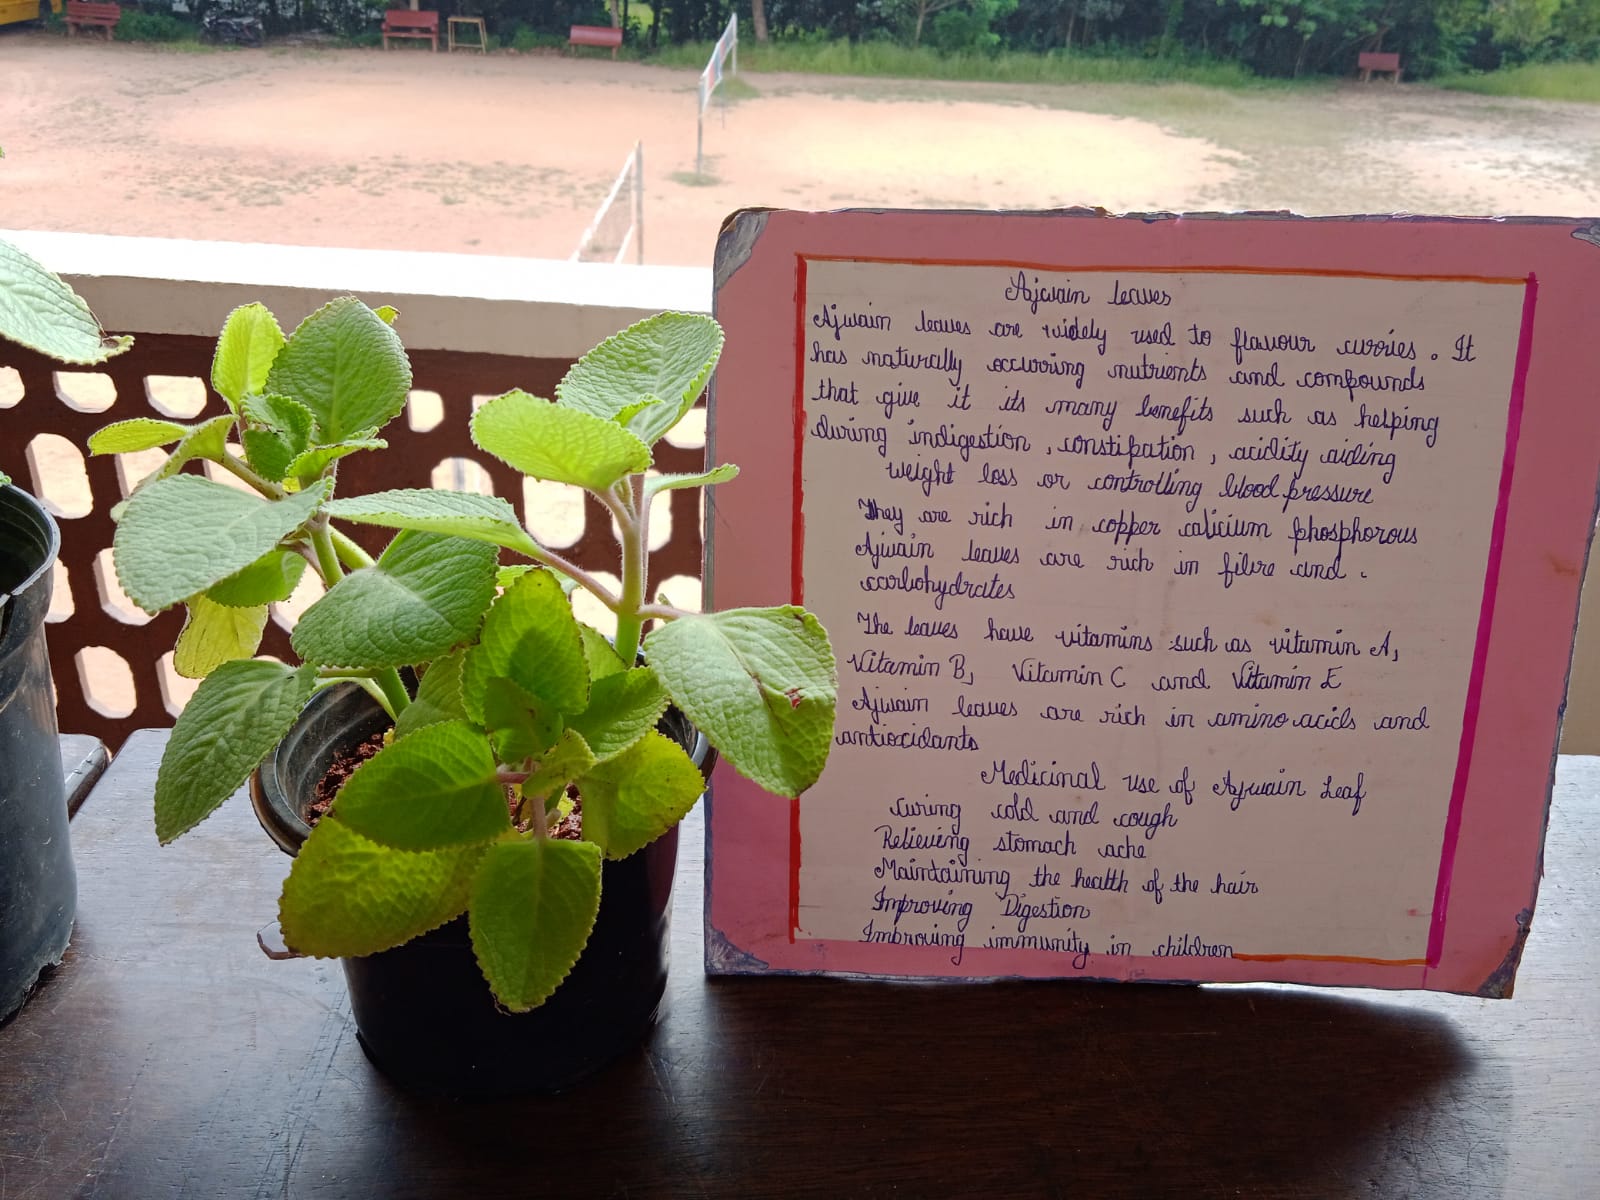 Ajwain leaves
Ajwain leaves are widely used to flavour curries. It
has naturally occurring nutrients and compounds
that give it its many benefits such as helping
during indigestion, constipation, acidity aiding
weight loss or controlling blood pressure
They are rich in copper calicium phosphorous
Ajwain leaves are rich in fibre and.
carbohydrates
The leaves have vitamins such as vitamin A,
Vitamin B, Vitamin C and Vitamin E
Ajwain leaves are rich in amino acids and
antioxidants
Medicinal use of Ajwain Leaf
curing cold and cough
Relieving stomach ache
Maintaining the health of the hair
Improving Digestion
Improving immunity in children